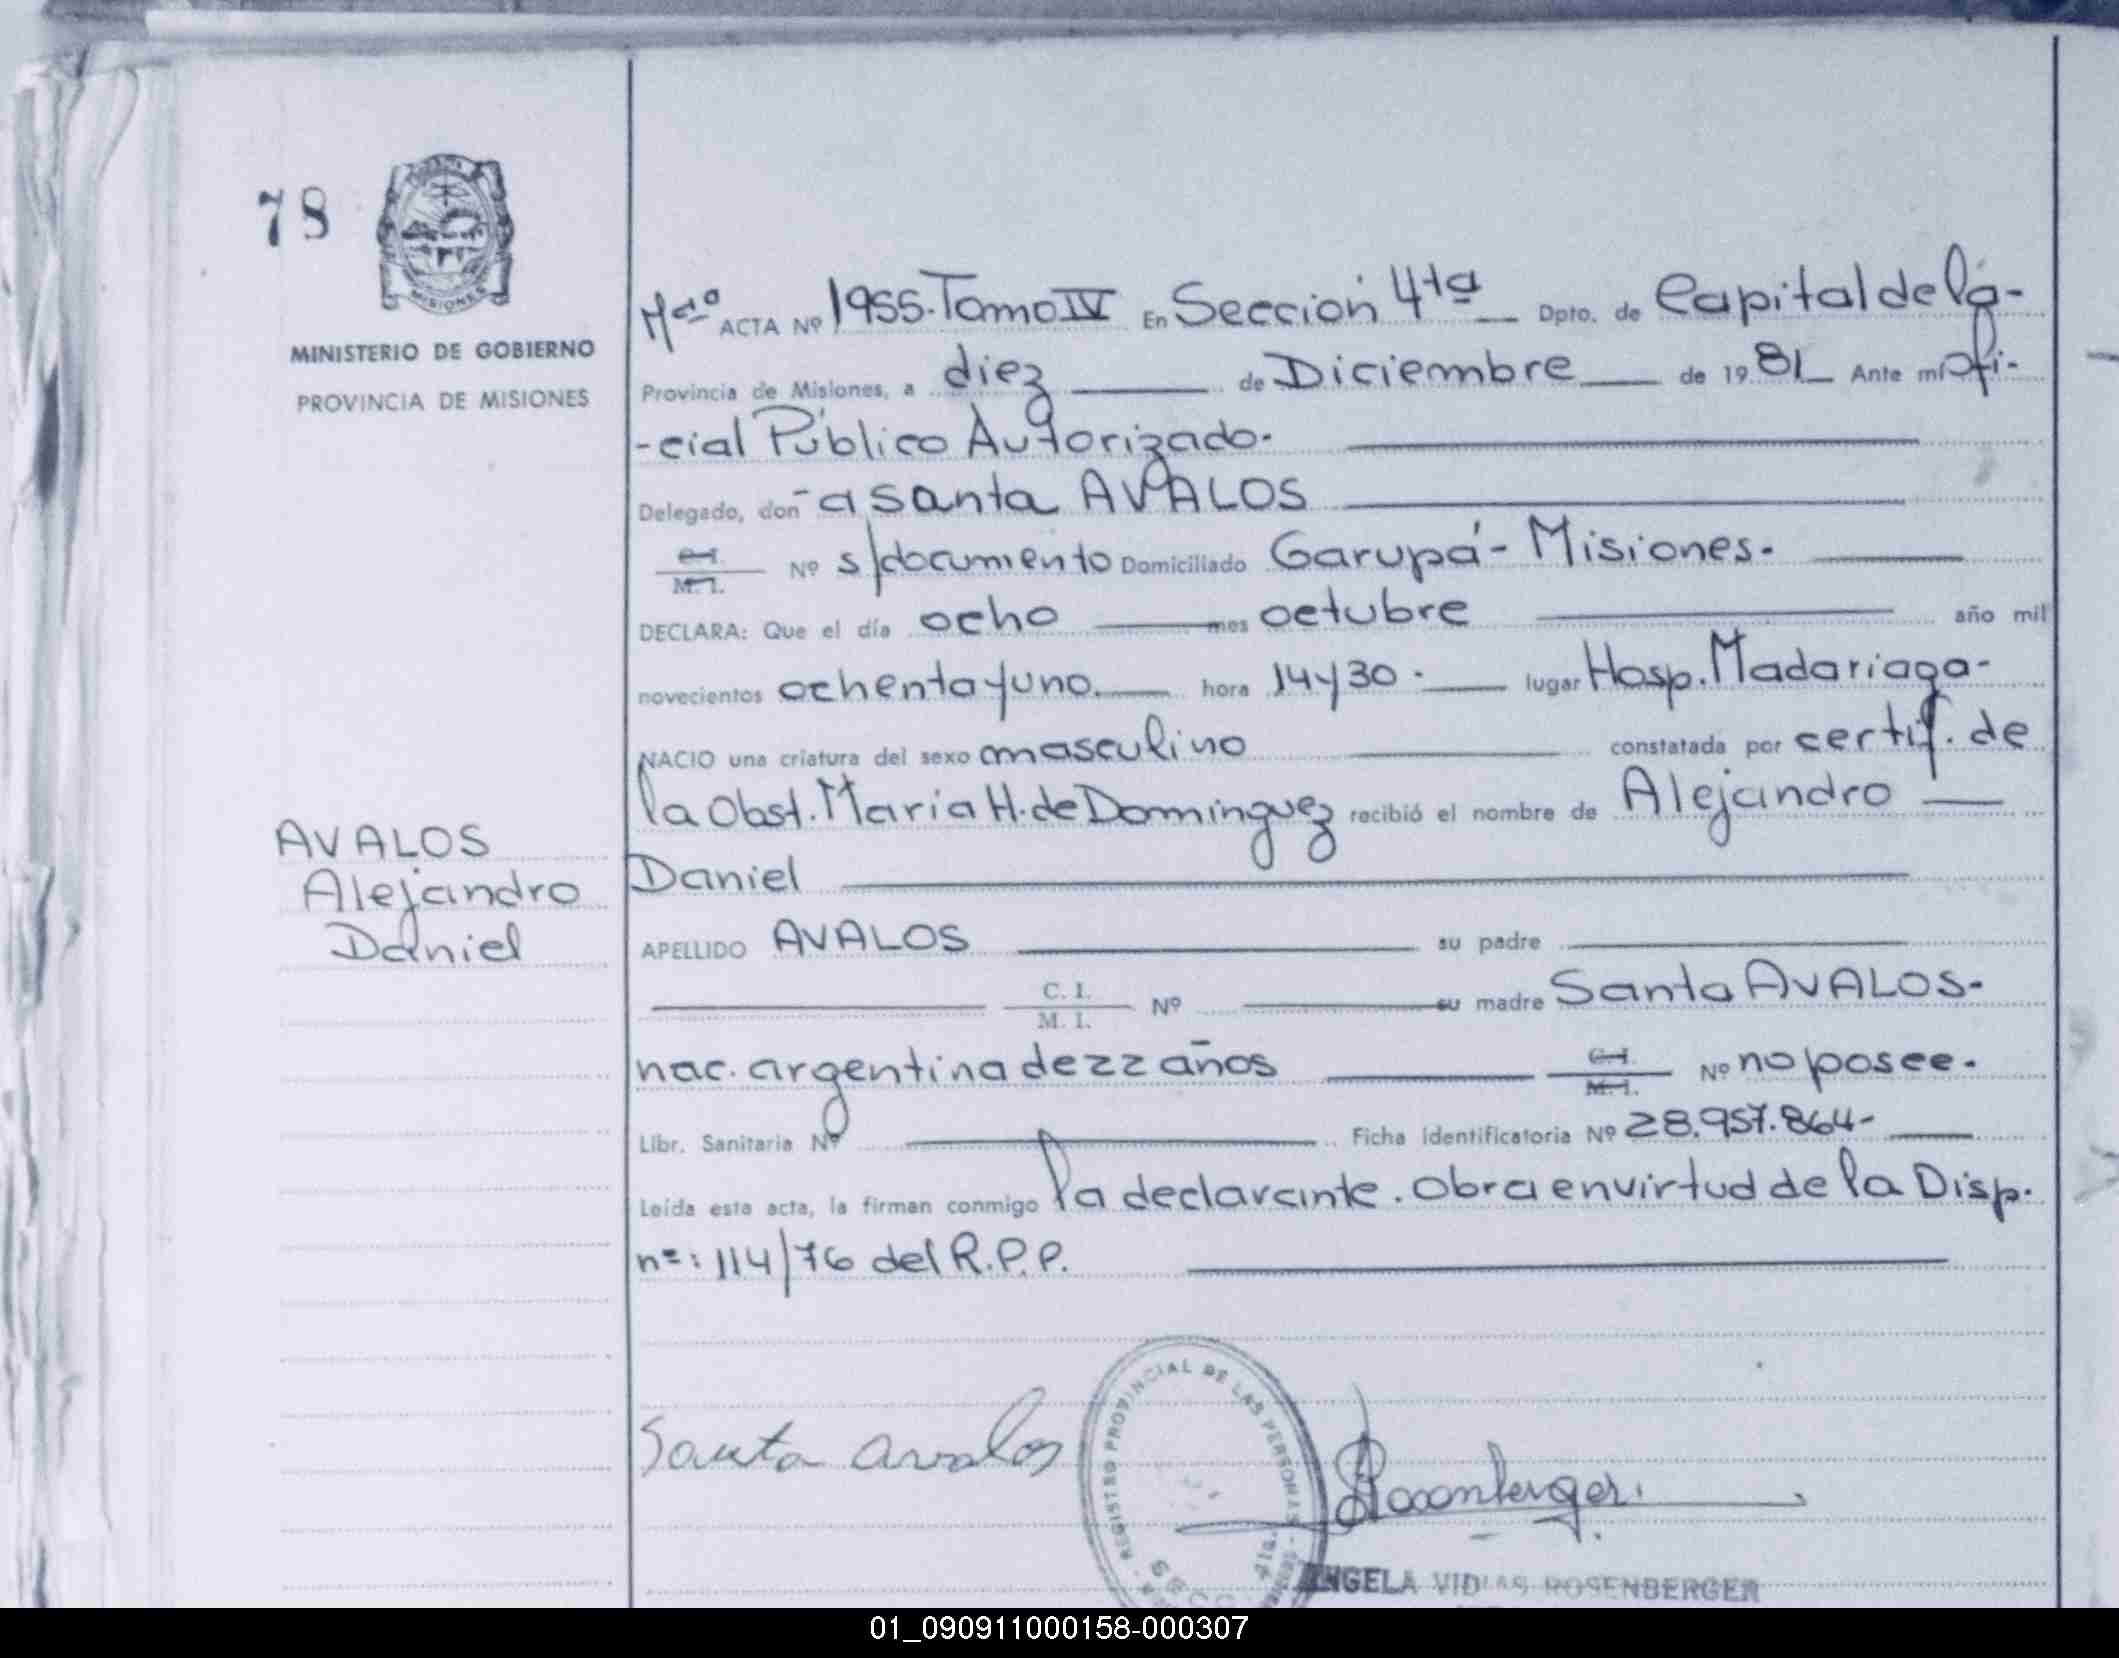 78
MISIONES
MINISTERIO DE GOBIERNO
PROVINCIA DE MISIONES
AVALOS
Alejandro
Daniel
ACTA Nº 1955. Tomo IV En Sección 4ta Dpto. de Capital de la-
Provincia de Misiones, a diez de Diciembre de 1981 Ante mi Ofi-
-cial Público Autorizado.
Delegado, don-a Santa AVALOS
C. I. / M. I. Nº s/documento Domiciliado Garupá- Misiones.
DECLARA: Que el día ocho mes octubre año mil
novecientos ochenta y uno. hora 14 y 30. lugar Hosp. Madariaga-
NACIO una criatura del sexo masculino constatada por certif. de
la Obst. María H. de Domínguez recibió el nombre de Alejandro
Daniel
APELLIDO AVALOS su padre
C. I. / M. I. Nº su madre Santa AVALOS-
nac. argentina de 22 años C. I. / M. I. Nº no posee.
Libr. Sanitaria Nº Ficha identificatoria Nº 28.957.864-
Leída esta acta, la firman conmigo la declarante. Obra en virtud de la Disp.
nº: 114/76 del R.P.P.
REGISTRO PROVINCIAL DE LAS PERSONAS
4ta.
Santa Avalos
Rosenberger
ANGELA VIDLAS ROSENBERGER
01_090911000158-000307